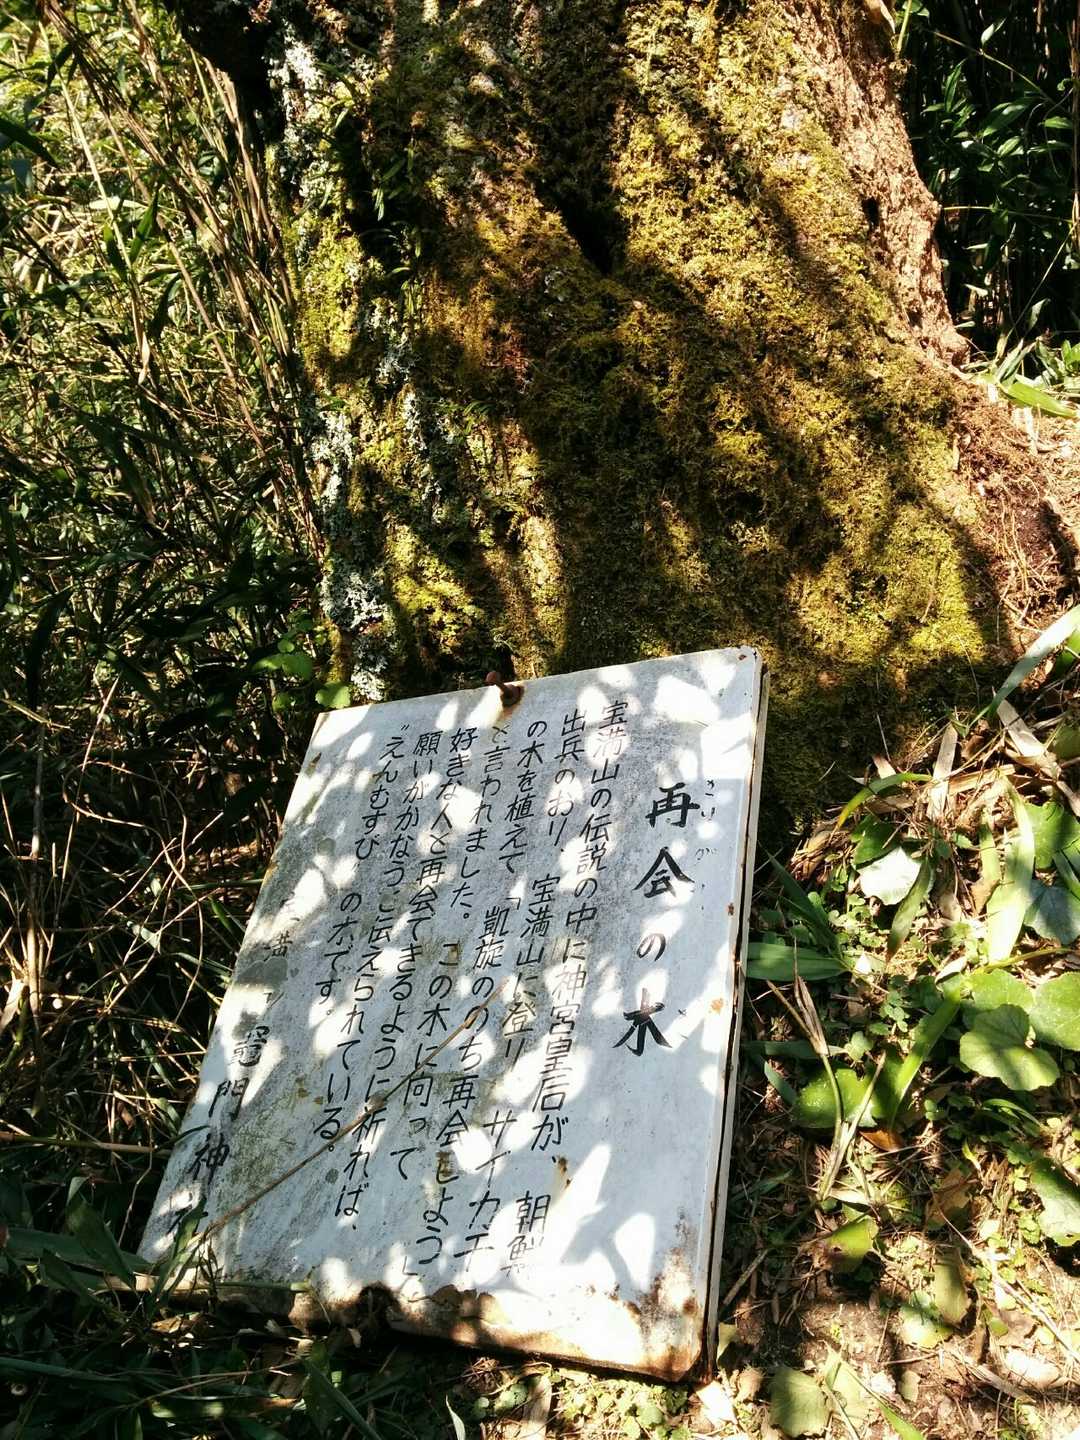 再会の木
宝満山の伝説の中に神宮皇后が、朝鮮
出兵のおり、宝満山に登り サイカチ
の木を植えて「凱旋ののち再会しよう」
と言われました。この木に向って
好きな人と再会できるように祈れば、
願いがかなうと伝えられている。
"えんむすび の木です。
竈門神社